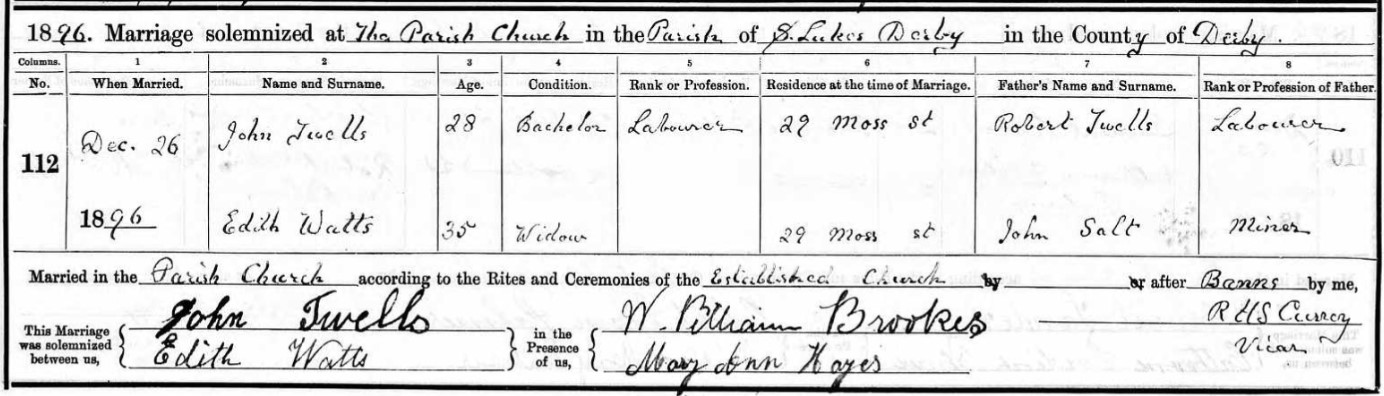 1896. Marriage solemnized at The Parish Church in the Parish of S. Lukes Derby in the County of Derby.
Columns. 1 2 3 4 5 6 7 8
No. When Married. Name and Surname. Age. Condition. Rank or Profession. Residence at the time of Marriage. Father's Name and Surname. Rank or Profession of Father.
112 Dec. 26 John Twells 28 Bachelor Labourer 29 Moss st Robert Twells Labourer
1896 Edith Watts 35 Widow 29 Moss st John Salt Miner
Married in the Parish Church according to the Rites and Ceremonies of the Established Church by or after Banns by me,
This Marriage was solemnized between us, John Twells in the Presence of us, W. William Brookes R H S Currey
Edith Watts Mary Ann Hayes Vicar